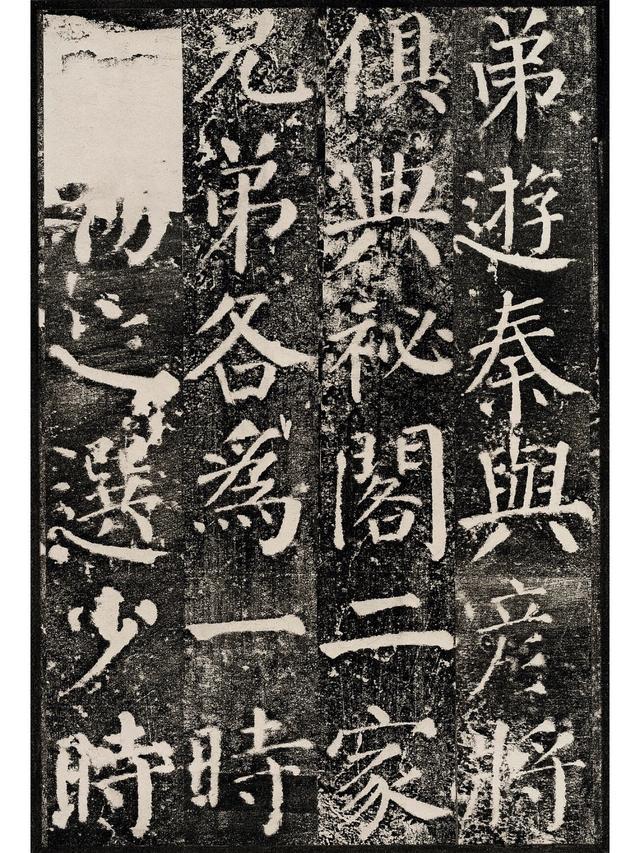 弟遊秦與彥將
俱典祕閣二家
兄弟各為一時
物之選少時